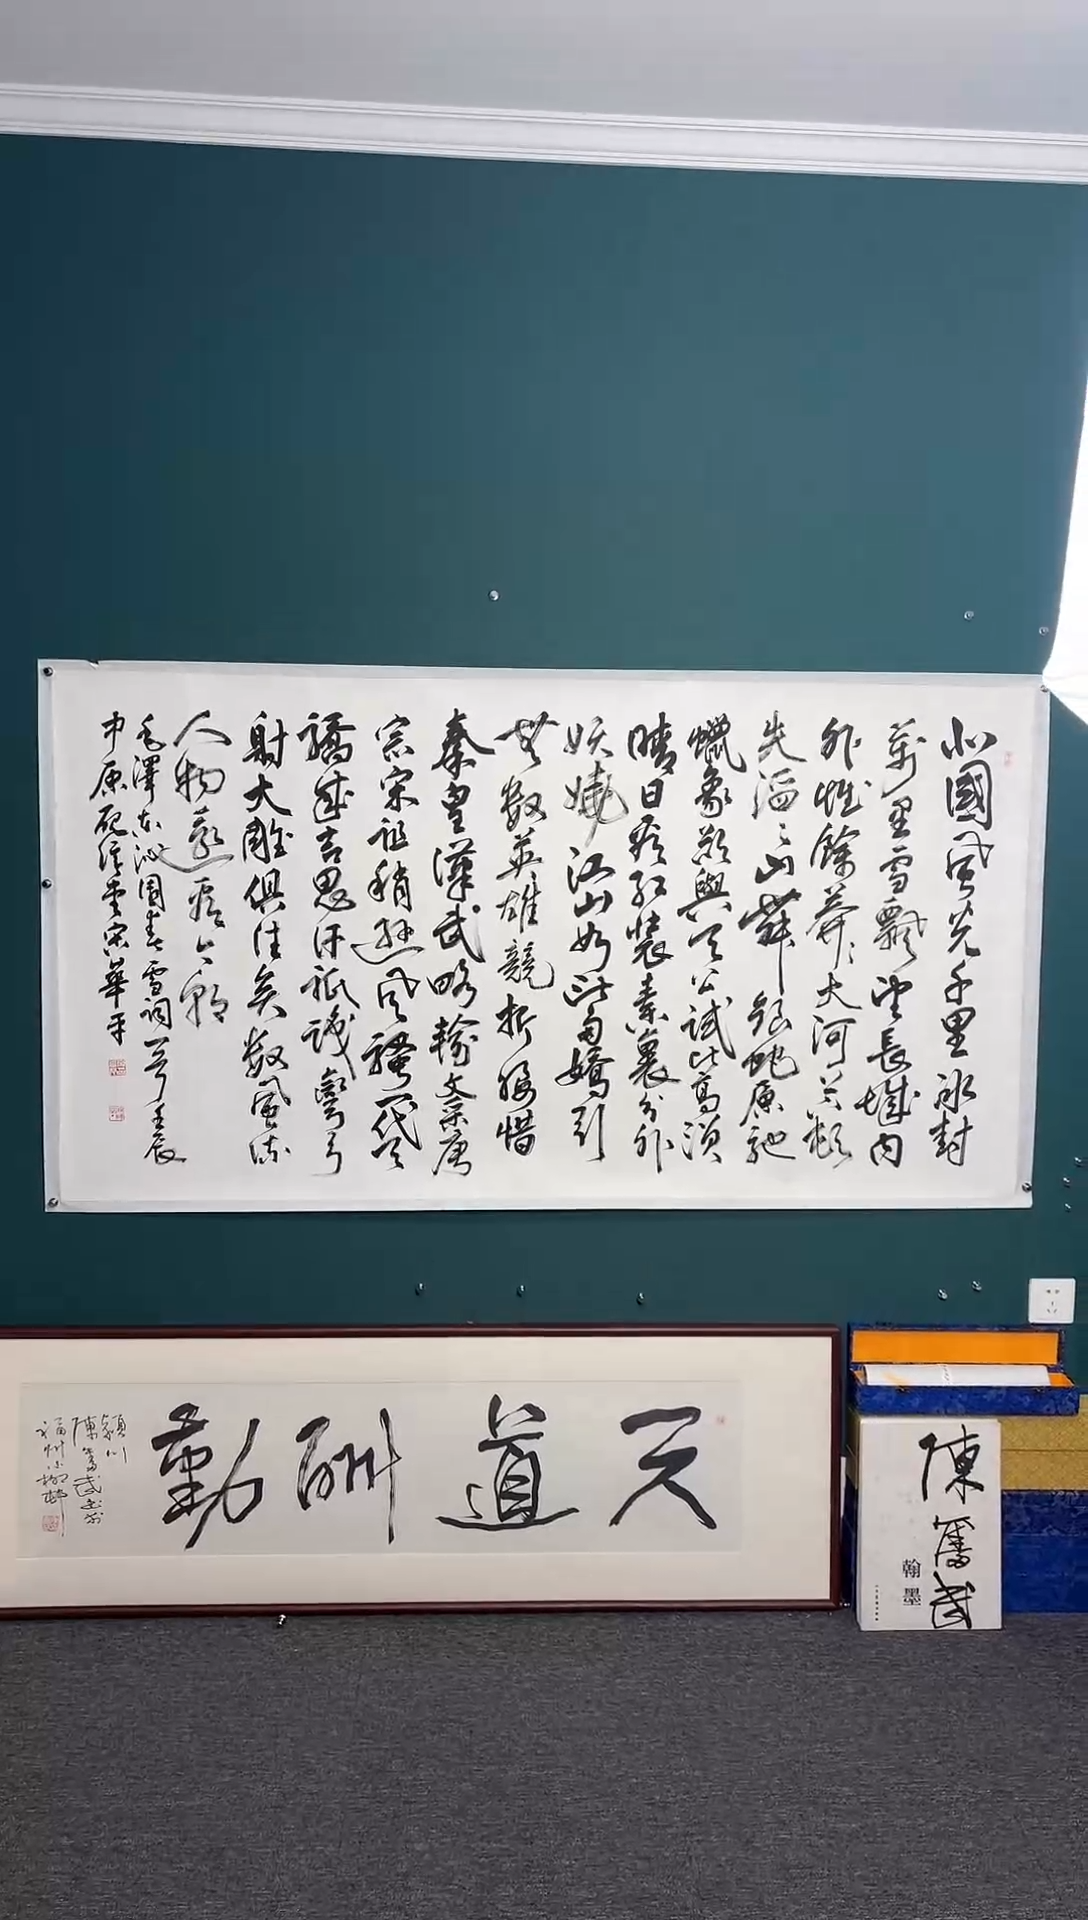 北國風光千里冰封
萬里雪飄望長城内
外惟餘莽々大河上下頓
失滔々山舞銀蛇原馳
蠟象欲與天公試比高須
晴日看紅裝素裹分外
妖嬈江山如此多嬌引
無數英雄競折腰惜
秦皇漢武略輸文采唐
宗宋祖稍遜風騷一代天
驕成吉思汗祇識彎弓
射大雕俱往矣數風流
人物還看今朝
毛澤東沁園春雪詞一首壬辰
中原宋華平
天道酬勤
潁川
陳奮武書於
福州小柳村
陳奮武
翰墨